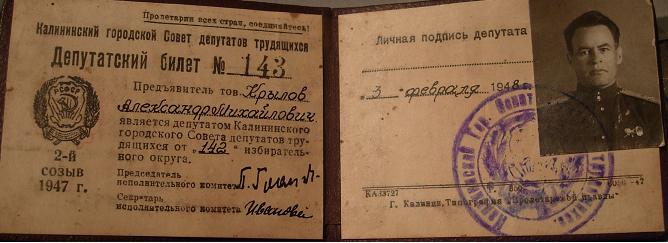 Пролетарии всех стран, соединяйтесь!
Калининский городской Совет депутатов трудящихся
Депутатский билет № 143
Предъявитель тов. Крылов
Александр Михайлович
является депутатом Калининского
городского Совета депутатов тру-
дящихся от "142" избиратель-
ного округа.
РСФСР
2-й
созыв
1947 г.
Председатель
исполнительного комитета
Секретарь
исполнительного комитета
Личная подпись депутата
"3" февраля 1948 г.
КА33727
Г. Калинин, Типография "Пролетарской правды"